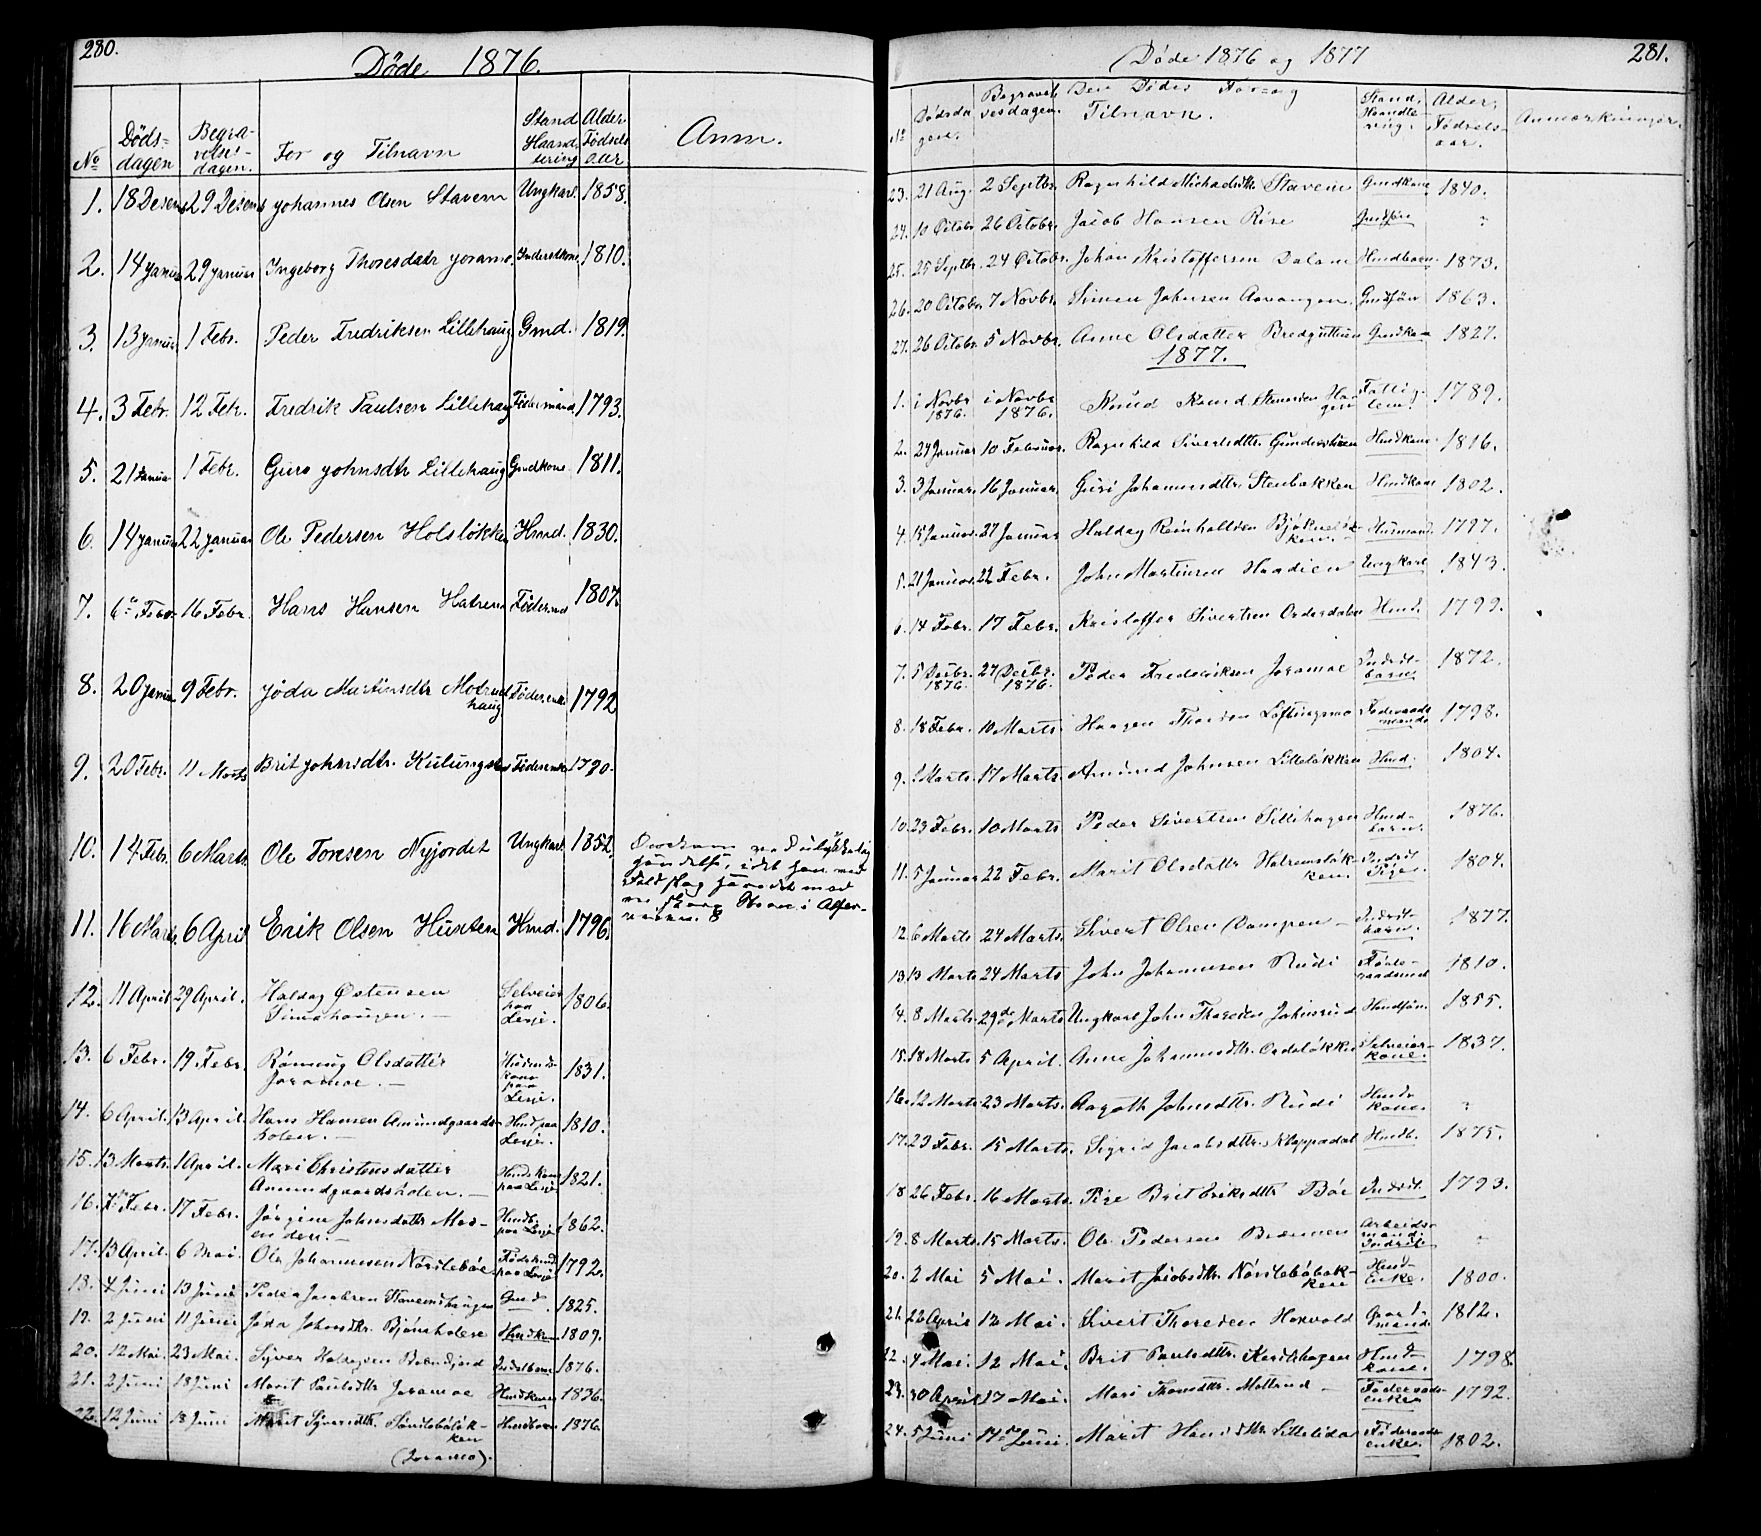 280.
Døde 1876.
No Dødsdagen Begravelsesdagen. For og Tilnavn Stand Haandtering Alder Fødselsaar Anm.
1. 18 Desem 29 Desem Johannes Olsen Stavem Ungkarl 1858.
2. 14 Januar 29 Januar Ingeborg Thoresdatr Joramo. 1810.
3. 13 Januar 1 Febr. Peder Fredriksen Lillehaug Gmd. 1819.
4. 3 Febr. 12 Febr. Fredrik Paulsen Lillehaug Födermand 1793.
5. 21 Januar 1 Febr. Guro Johnsdtr Lillehaug Gmdkone 1811.
6. 14 Januar 22 Januar Ole Pedersen Holsløkken Hmd. 1830.
7. 6te Febr. 16 Febr. Hans Hansen Hatrem Födermd 1807.
8. 20 Januar 9 Febr. Jöda Martinsdtr Motrud
haug Föderenke 1792
9. 20 Febr. 11 Marts Brit Johnsdtr. Föderenke 1790.
10. 14 Febr. 6 Marts Ole Toresen Nyjordet Ungkarl 1852.
11. 16 Marts 6 April Erik Olsen Hmd. 1796.
12. 11 April 29 April. Haldog Østensen Selveier
paa
Lesje. 1806.
13. 6 Febr. 19 Febr. Rönnug Olsdatter
Joramoe. — Husmands
kone
paa
Lesje. 1831.
14. 6 April. 13 April. Hans Hansen Amundgaards
holen. — Hmd paa
Lesje. 1810.
15. 13 Marts. 1 April. Mari Christensdatter
Amundgaardsholen. — Hmds kone
paa Lesje 1821.
16. 7de Febr. 17 Febr. Jörgine Johnsdatter Mo-
en den. — Hmdb.
paa Lesje 1862.
17. 13 April. 6 Mai. Ole Johannesen Norstebøe Födermd
paa Lesje 1792.
18. 4 Juni 13 Juni Peder Jacobsen Stavemshaugen Gmd. 1825.
19. 2 Juni 11 Juni Jöda Johnsdtr. Bjönsholene Hmdkone 1809.
20. 12 Mai. 23 Mai. Syver 1876.
21. 2 Juni 18 Juni Marit Paulsdtr Joramoe Hmdkone 1836.
22. 12 Juni 18 Juni Marit Syversdtr. Norstebøløk-
ken Hmdbarn 1876.
(Joramo).
Døde 1876 og 1877 281.
No Dødsdagen. Begravelsesdagen. Den Dødes For- og
Tilnavn. Stand, Haandtering. Alder, Fødselsaar. Anmærkninger.
23. 21 Aug. 2 Septbr. Ragnhild Michaelsdtr Stavem Gmdkone 1840.
24. 10 Octobr. 26 Octobr. Jacob Hansen Rise
25. 25 Septbr. 24 Octobr. Johan Kristoffersen Dalane Hmdbarn. 1873.
26. 20 Octobr. 7 Novbr. Simen Johnsen Gmdsön 1863.
27. 26 Octobr. 5 Novbr. Anne Olsdatter Bredguttuen Gmdkone 1827.
1877.
1. i Novbr
1876. i Novbr
1876. Knud Knudsen Fattig-
lem. 1789.
2. 24 Januar 10 Februar. Ragnhild Sivertsdtr. Hmdkone. 1816.
3. 3 Januar. 16 Januar. Guri Johannesdtr. Stenbakken Hmdkone 1802.
4. 15 Januar. 27 Januar Haldog Reinholdsen Bjøkneløk-
ken. Husmand. 1797.
5. 21 Januar. 22 Febr. John Martinsen Haadien Ungkarl 1843.
6. 14 Febr. 17 Febr. Kristoffer Sivertsen Hmd. 1799.
7. 5 Decbr.
1876. 27 Decbr.
1876. Peder Frederiksen Joramoe Indrst-
barn 1872.
8. 18 Febr. 10 Marts. Haagen Thoresen Föderaads
mand. 1798.
9. 1 Marts. 17 Marts. Amund Johnsen Lilleløkken Hmd. 1804.
10. 23 Febr. 10 Marts Peder Sivertsen Lillehagen Hmd-
barn. 1876.
11. 5 Januar 22 Febr. Marit Olsdatter Hatremsløk-
ken. Indrst
Pige. 1804.
12. 6 Marts 24 Marts. Sivert Olsen Dampen — Indrst-
barn. 1877.
13. 13 Marts 24 Marts John Johannesen Rudi Föde-
raadsmd 1810.
14. 8 Marts 29de Marts Ungkarl John Thoresen Johnsrud Hmdsön. 1855.
15. 18 Marts 5 April. Anne Johannesdtr. Selveier-
kone. 1837.
16. 12 Marts. 23 Marts. Aagoth Johnsdtr. Rudi Hmds-
kone.
17. 23 Febr. 15 Marts. Sigrid Jacobsdtr. Kloppedal Hmdb. 1875.
18 26 Febr. 16 Marts. Pige Brit Eriksdtr Böe Indrst. 1793.
19. 8 Marts. 15 Marts. Ole Pedersen Brænnen Arbeids-
mand.
Indrst
20. 2 Mai 5 Mai. Marit Jacobsdtr. Nörstebøbak-
ken Hmd
Enke. 1800.
21. 22 April 12 Mai. Sivert Thoresen Horvold mand 1812.
22. 4 Mai. 12 Mai. Brit Paulsdtr. Hmd-
kone. 1798.
23. 30 April 17 Mai. Mari Thorsdtr. Mattrud — Föderaads-
enke 1792.
24. 5 Juni 14de Juni. Marit Hansdtr. Lillelidal Föderaads
enke. 1802.